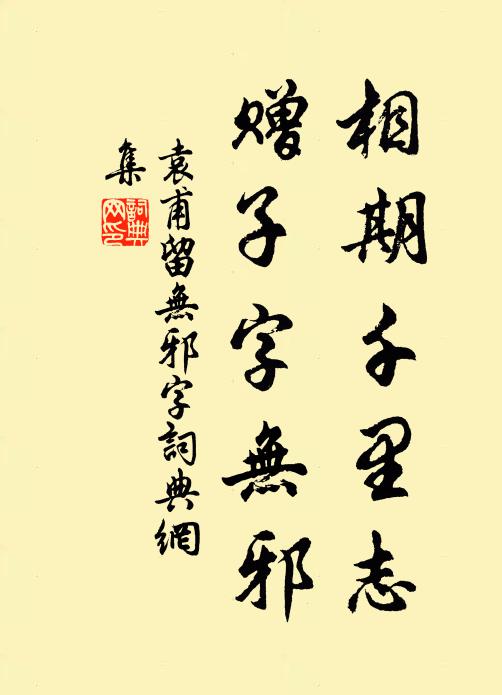 相期千里志
贈子字無邪
袁甫留無邪字詞典網
集
詞典
网印